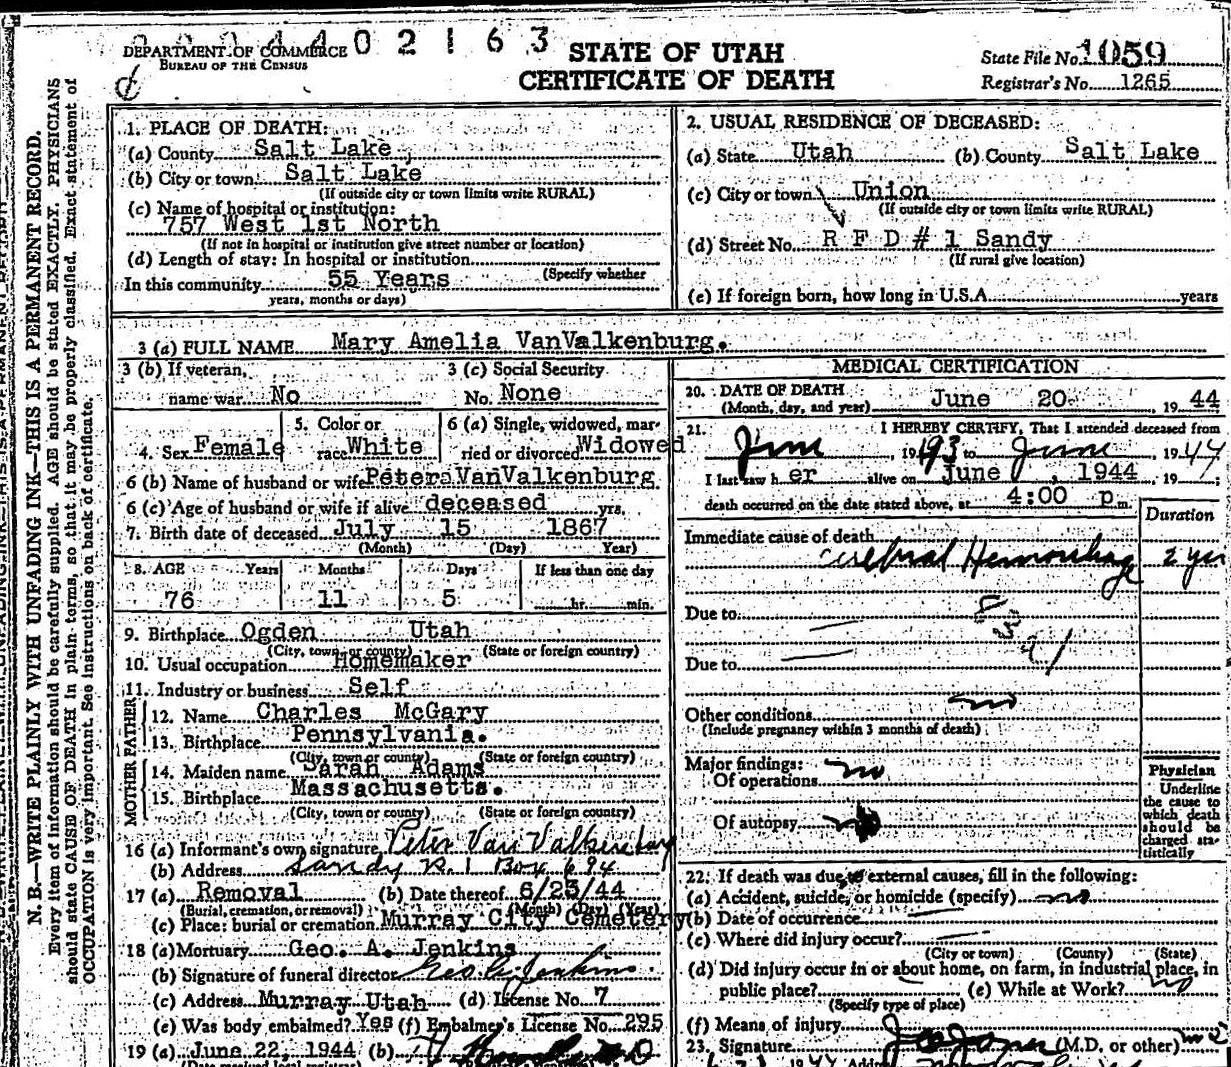 DEPARTMENT OF COMMERCE
BUREAU OF THE CENSUS
02163
STATE OF UTAH
CERTIFICATE OF DEATH
State File No. 1059
Registrar's No. 1265
N. B.—WRITE PLAINLY WITH UNFADING INK—THIS IS A PERMANENT RECORD.
Every item of information should be carefully supplied. AGE should be stated EXACTLY. PHYSICIANS
should state CAUSE OF DEATH in plain terms, so that it may be properly classified. Exact statement of
OCCUPATION is very important. See instructions on back of certificate.
1. PLACE OF DEATH:
(a) County Salt Lake
(b) City or town Salt Lake
(If outside city or town limits write RURAL)
(c) Name of hospital or institution:
757 West 1st North
(If not in hospital or institution give street number or location)
(d) Length of stay: In hospital or institution
(Specify whether
In this community 55 Years
years, months or days)
2. USUAL RESIDENCE OF DECEASED:
(a) State Utah (b) County Salt Lake
(c) City or town Union
(If outside city or town limits write RURAL)
(d) Street No. R F D # 1 Sandy
(If rural give location)
(e) If foreign born, how long in U.S.A. years
3 (a) FULL NAME Mary Amelia VanValkenburg.
3 (b) If veteran, 3 (c) Social Security
name war No No. None
4. Sex Female 5. Color or race White 6 (a) Single, widowed, married or divorced Widowed
6 (b) Name of husband or wife Peter VanValkenburg
6 (c) Age of husband or wife if alive deceased yrs.
7. Birth date of deceased July 15 1867
(Month) (Day) Year)
8. AGE Years Months Days If less than one day
76 11 5 hr. min.
9. Birthplace Ogden Utah
(City, town or county) (State or foreign country)
10. Usual occupation Homemaker
11. Industry or business Self
FATHER
12. Name Charles McGary
13. Birthplace Pennsylvania.
(City, town or county) (State or foreign country)
MOTHER
14. Maiden name Sarah Adams
15. Birthplace Massachusetts.
(City, town or county) (State or foreign country)
16 (a) Informant's own signature Peter Van Valkenburg
(b) Address Sandy R. 1 Box 694
17 (a) Removal (b) Date thereof 6/23/44
(Burial, cremation, or removal) (Month) (Day) (Year)
(c) Place: burial or cremation Murray City Cemetery
18 (a) Mortuary Geo. A. Jenkins
(b) Signature of funeral director Geo A Jenkins
(c) Address Murray Utah (d) License No. 7
(e) Was body embalmed? Yes (f) Embalmer's License No. 295
19 (a) June 22, 1944 (b)
(Date received local registrar)
MEDICAL CERTIFICATION
20. DATE OF DEATH
(Month, day, and year) June 20 , 19 44
21. I HEREBY CERTIFY, That I attended deceased from
June , 1943 to June , 19 44
I last saw h er alive on June , 1944 , 19 ;
death occurred on the date stated above, at 4:00 p m.
Duration
Immediate cause of death
Cerebral Hemorrhage 2 yrs
Due to
Due to
Other conditions no
(Include pregnancy within 3 months of death)
Major findings:
Of operations no
Of autopsy no
Physician
Underline
the cause to
which death
should be
charged sta-
tistically
22. If death was due to external causes, fill in the following:
(a) Accident, suicide, or homicide (specify) no
(b) Date of occurrence
(c) Where did injury occur?
(City or town) (County) (State)
(d) Did injury occur in or about home, on farm, in industrial place, in
public place? (e) While at Work? no
(Specify type of place)
(f) Means of injury
23. Signature (M.D. or other)